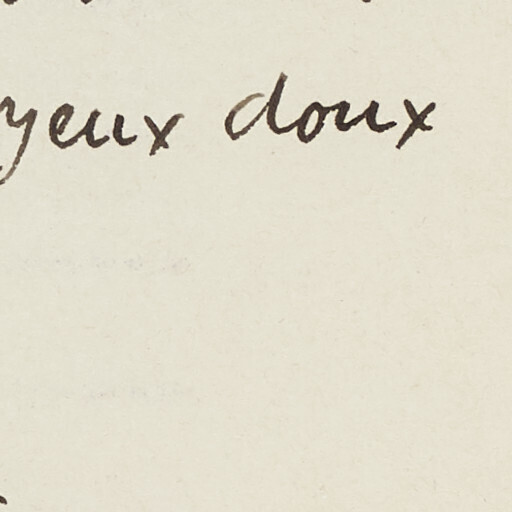 yeux doux